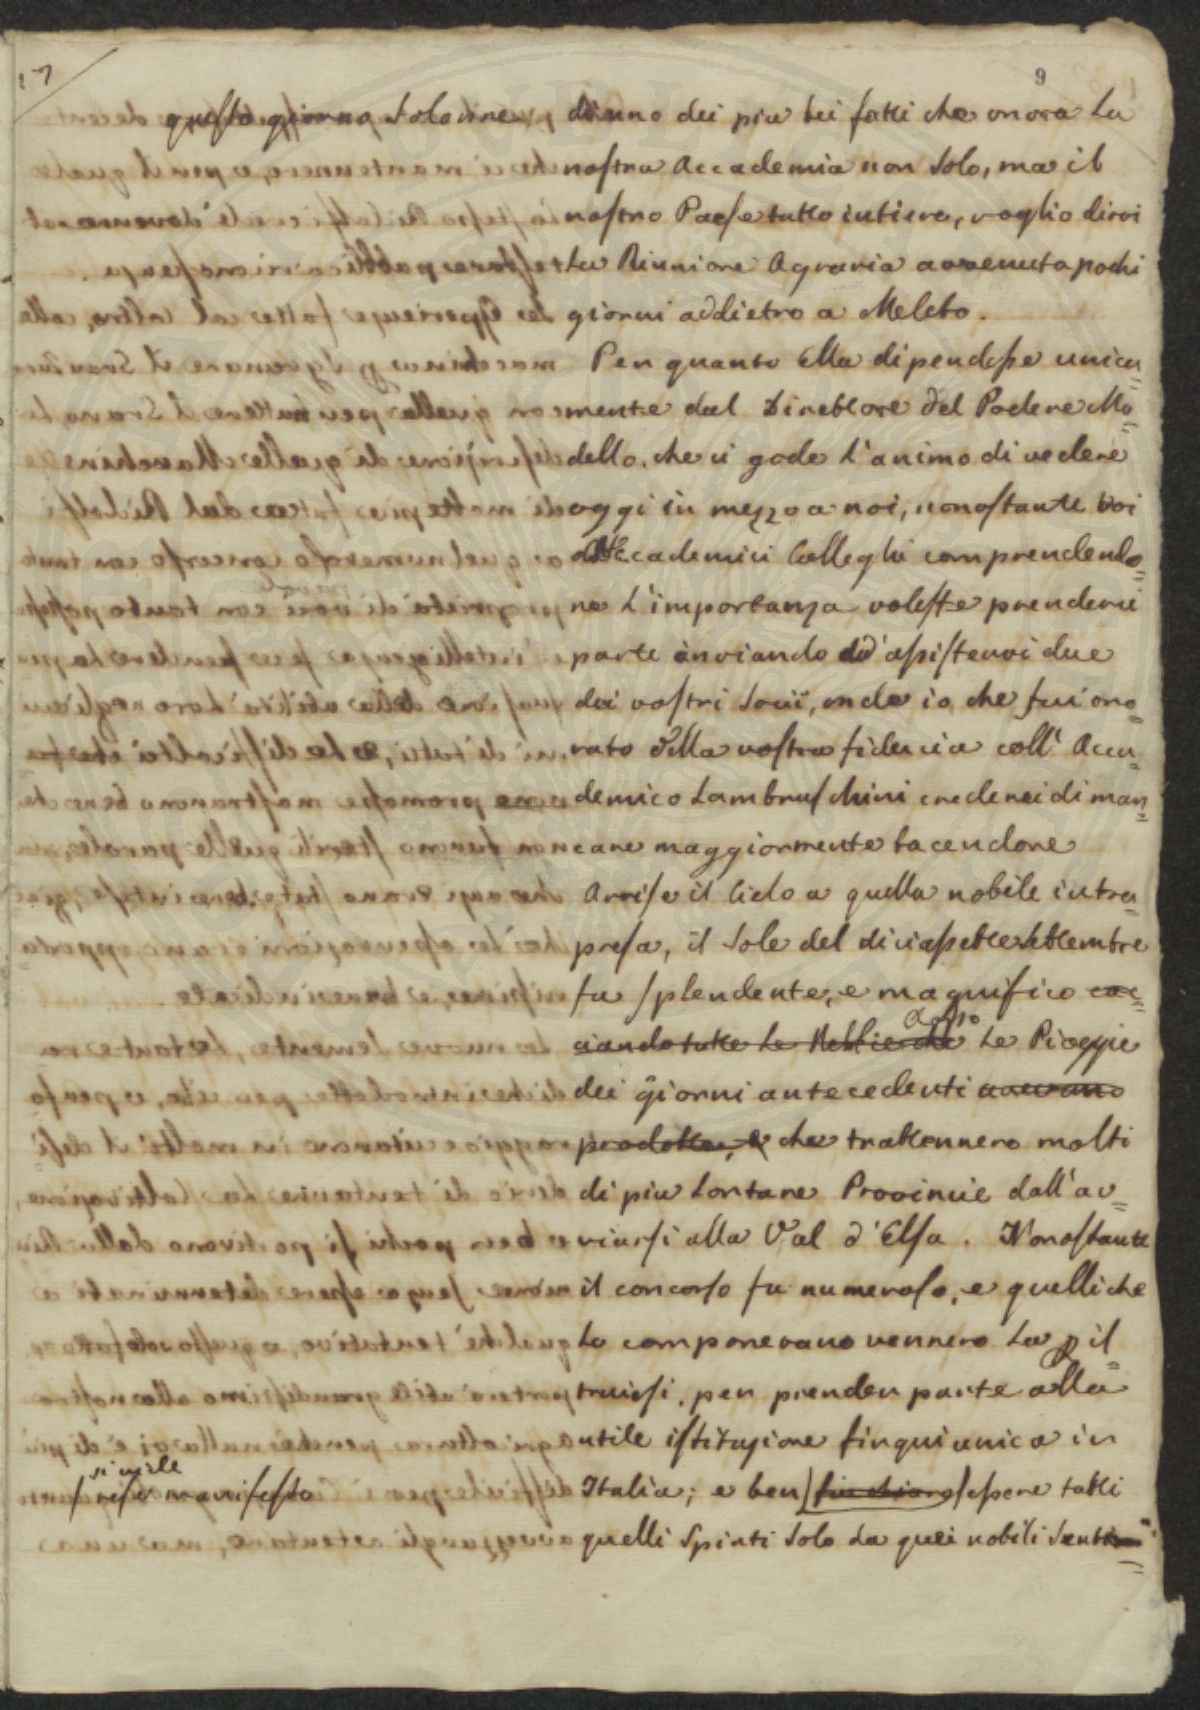 17
9
questo giorno solo dire di uno dei piu bei fatti che onora la
nostra Accademia non solo, ma il
nostro Paese tutto intiero, voglio dirvi
La Riunione Agraria avvenuta pochi
giorni addietro a Meleto.
Per quanto Ella dipendesse unica=
mente dal Direttore del Podere Mo=
dello, che ci gode l'animo di vedere
oggi in mezzo a noi, nonostante voi
Accademici Colleghi comprendendo=
ne l'importanza voleste prenderci
parte inviando ad'assistervi due
dei vostri Socii, onde io che fui ono=
rato della vostra fiducia coll' Acca=
demico Lambruschini crederei di man=
care maggiormente tacendone
Arrise il Cielo a quella nobile intra=
presa, il Sole del diciassette Settembre
fu splendente, e magnifico cac=
ciando tutte le Nebbie che Le Pioggie
dei giorni antecedenti avevano
prodotte, e che trattennero molti
di piu Lontane Provincie dall'av=
viarsi alla Val d'Elsa. Nonostante
il concorso fu numeroso, e quelli che
Lo componevano vennero La p il=
truirsi, per prender parte alla
utile istituzione finqui unica in
simile
si rese manifesto
Italia; e ben fu chiaro essere tatti
quelli Spinti Solo da quei nobili Senti=